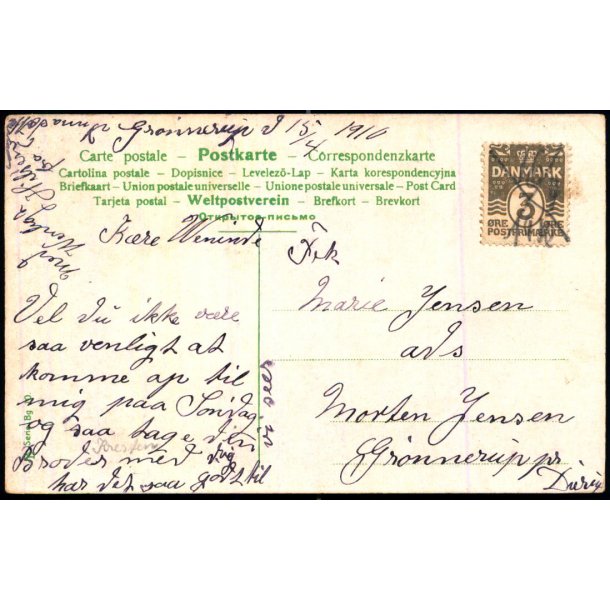 Grønnerup d 15/4 1910
Carte postale – Postkarte – Córrespondenzkarte
Cartolina postale – Dopisnice – Levelező-Lap – Karta korespondencyjna
Briefkaart – Union postale universelle – Unione postale universale – Post Card
Tarjeta postal – Weltpostverein – Brefkort – Brevkort
Открытое письмо
DANMARK
3
ØRE ØRE
POSTFRIMÆRKE
Kære Veninde
Vel du ikke være
saa venligt at
komme op til
mig paa Søndag
og saa tage din
Broder med dig
har det saa godt til
Frk
Marie Jensen
ads
Morten Jensen
Grønnerup pr